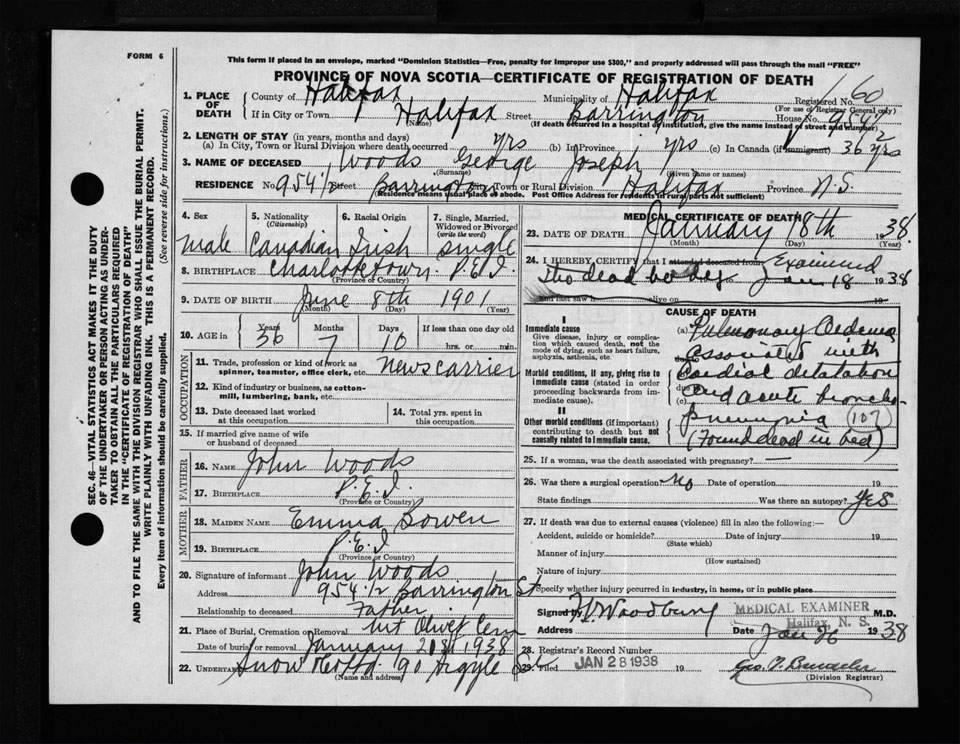 FORM 6
This form if placed in an envelope, marked "Dominion Statistics—Free, penalty for improper use $300," and properly addressed will pass through the mail "FREE"
PROVINCE OF NOVA SCOTIA—CERTIFICATE OF REGISTRATION OF DEATH
1. PLACE OF DEATH
County of Halifax Municipality of Halifax Registered No. 60
(For use of Registrar General only)
If in City or Town Halifax Street Barrington House No. 954½
(Name) (If death occurred in a hospital or institution, give the name instead of street and number)
2. LENGTH OF STAY (in years, months and days)
(a) In City, Town or Rural Division where death occurred yrs (b) In Province yrs (c) In Canada (if immigrant) 36 yrs
3. NAME OF DECEASED Woods George Joseph
(Surname) (Given name or names)
RESIDENCE No. 954½ Street Barrington City, Town or Rural Division Halifax Province N.S.
(Residence means usual place of abode. Post Office Address for residents in rural parts not sufficient)
4. Sex
male
5. Nationality
(Citizenship)
Canadian
6. Racial Origin
Irish
7. Single, Married, Widowed or Divorced
(write the word)
single
8. BIRTHPLACE Charlottetown. P.E.I.
(Province or Country)
9. DATE OF BIRTH June 8th 1901
(Month) (Day) (Year)
10. AGE in
Years Months Days If less than one day old
36 7 10 hrs. or min.
OCCUPATION
11. Trade, profession or kind of work as spinner, teamster, office clerk, etc. News carrier
12. Kind of industry or business, as cotton-mill, lumbering, bank, etc.
13. Date deceased last worked at this occupation
14. Total yrs. spent in this occupation
15. If married give name of wife or husband of deceased
FATHER
16. NAME John Woods
17. BIRTHPLACE P.E.I.
(Province or Country)
MOTHER
18. MAIDEN NAME Emma Bowen
19. BIRTHPLACE P.E.I
(Province or Country)
20. Signature of informant John Woods
Address 954½ Barrington St
Relationship to deceased Father
21. Place of Burial, Cremation or Removal Mt Olivet Cem
Date of burial or removal January 1938
22. UNDERTAKER Snow & Co Ltd 90 Argyle St
(Name and address)
MEDICAL CERTIFICATE OF DEATH
23. DATE OF DEATH January 18th 1938.
(Month) (Day)
24. I HEREBY CERTIFY that I attended deceased from Examined
the dead body Jan 18 1938
and last saw h alive on 19
CAUSE OF DEATH
I
Immediate cause
Give disease, injury or complication which caused death, not the mode of dying, such as heart failure, asphyxia, asthenia, etc.
(a) Pulmonary Oedema
associated with
Morbid conditions, if any, giving rise to immediate cause (stated in order proceeding backwards from immediate cause).
cardial dilatation
(c) and acute broncho-
pneumonia (107)
II
Other morbid conditions (if important) contributing to death but not causally related to immediate cause.
(Found dead in bed)
25. If a woman, was the death associated with pregnancy? —
26. Was there a surgical operation? No Date of operation 19
State findings Was there an autopsy? Yes
27. If death was due to external causes (violence) fill in also the following:—
Accident, suicide or homicide? Date of injury 19
(State which)
Manner of injury
(How sustained)
Nature of injury
Specify whether injury occurred in industry, in home, or in public place
Signed by Woodbury MEDICAL EXAMINER M.D.
Halifax, N. S.
Address Date Jan 26 1938
28. Registrar's Record Number
29. Filed JAN 28 1938 19
(Division Registrar)
SEC. 46—VITAL STATISTICS ACT MAKES IT THE DUTY OF THE UNDERTAKER OR PERSON ACTING AS UNDERTAKER TO OBTAIN ALL THE PARTICULARS REQUIRED IN THE "CERTIFICATE OF REGISTRATION OF DEATH" AND TO FILE THE SAME WITH THE DIVISION REGISTRAR WHO SHALL ISSUE THE BURIAL PERMIT.
WRITE PLAINLY WITH UNFADING INK. THIS IS A PERMANENT RECORD.
Every item of information should be carefully supplied. (See reverse side for instructions.)